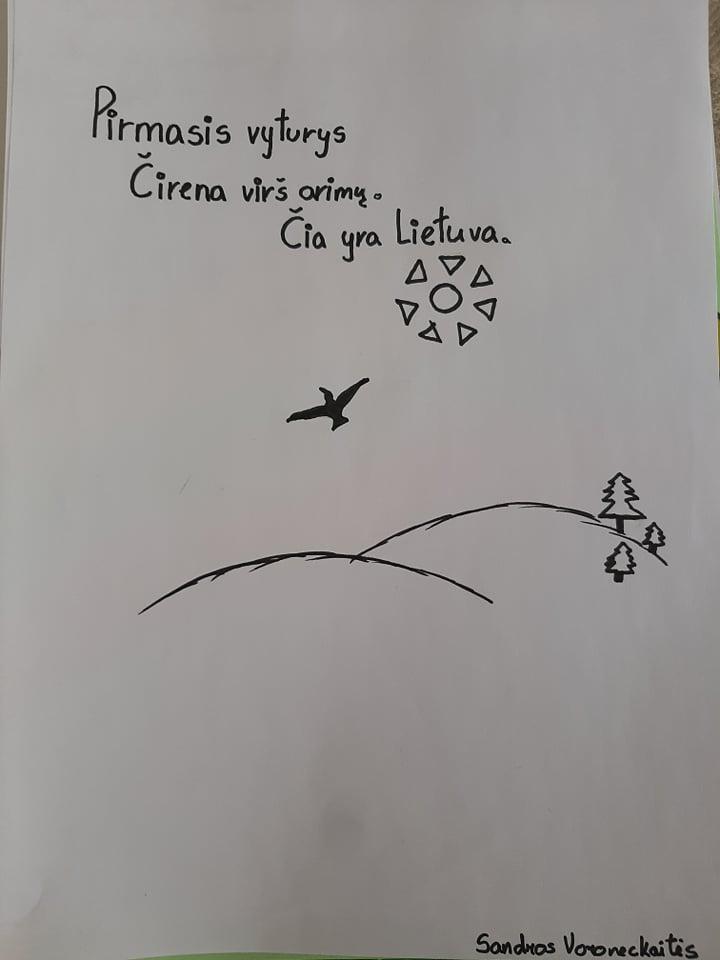 Pirmasis vyturys
Čirena virš arimų.
Čia yra Lietuva.
Sandros Voroneckaitės